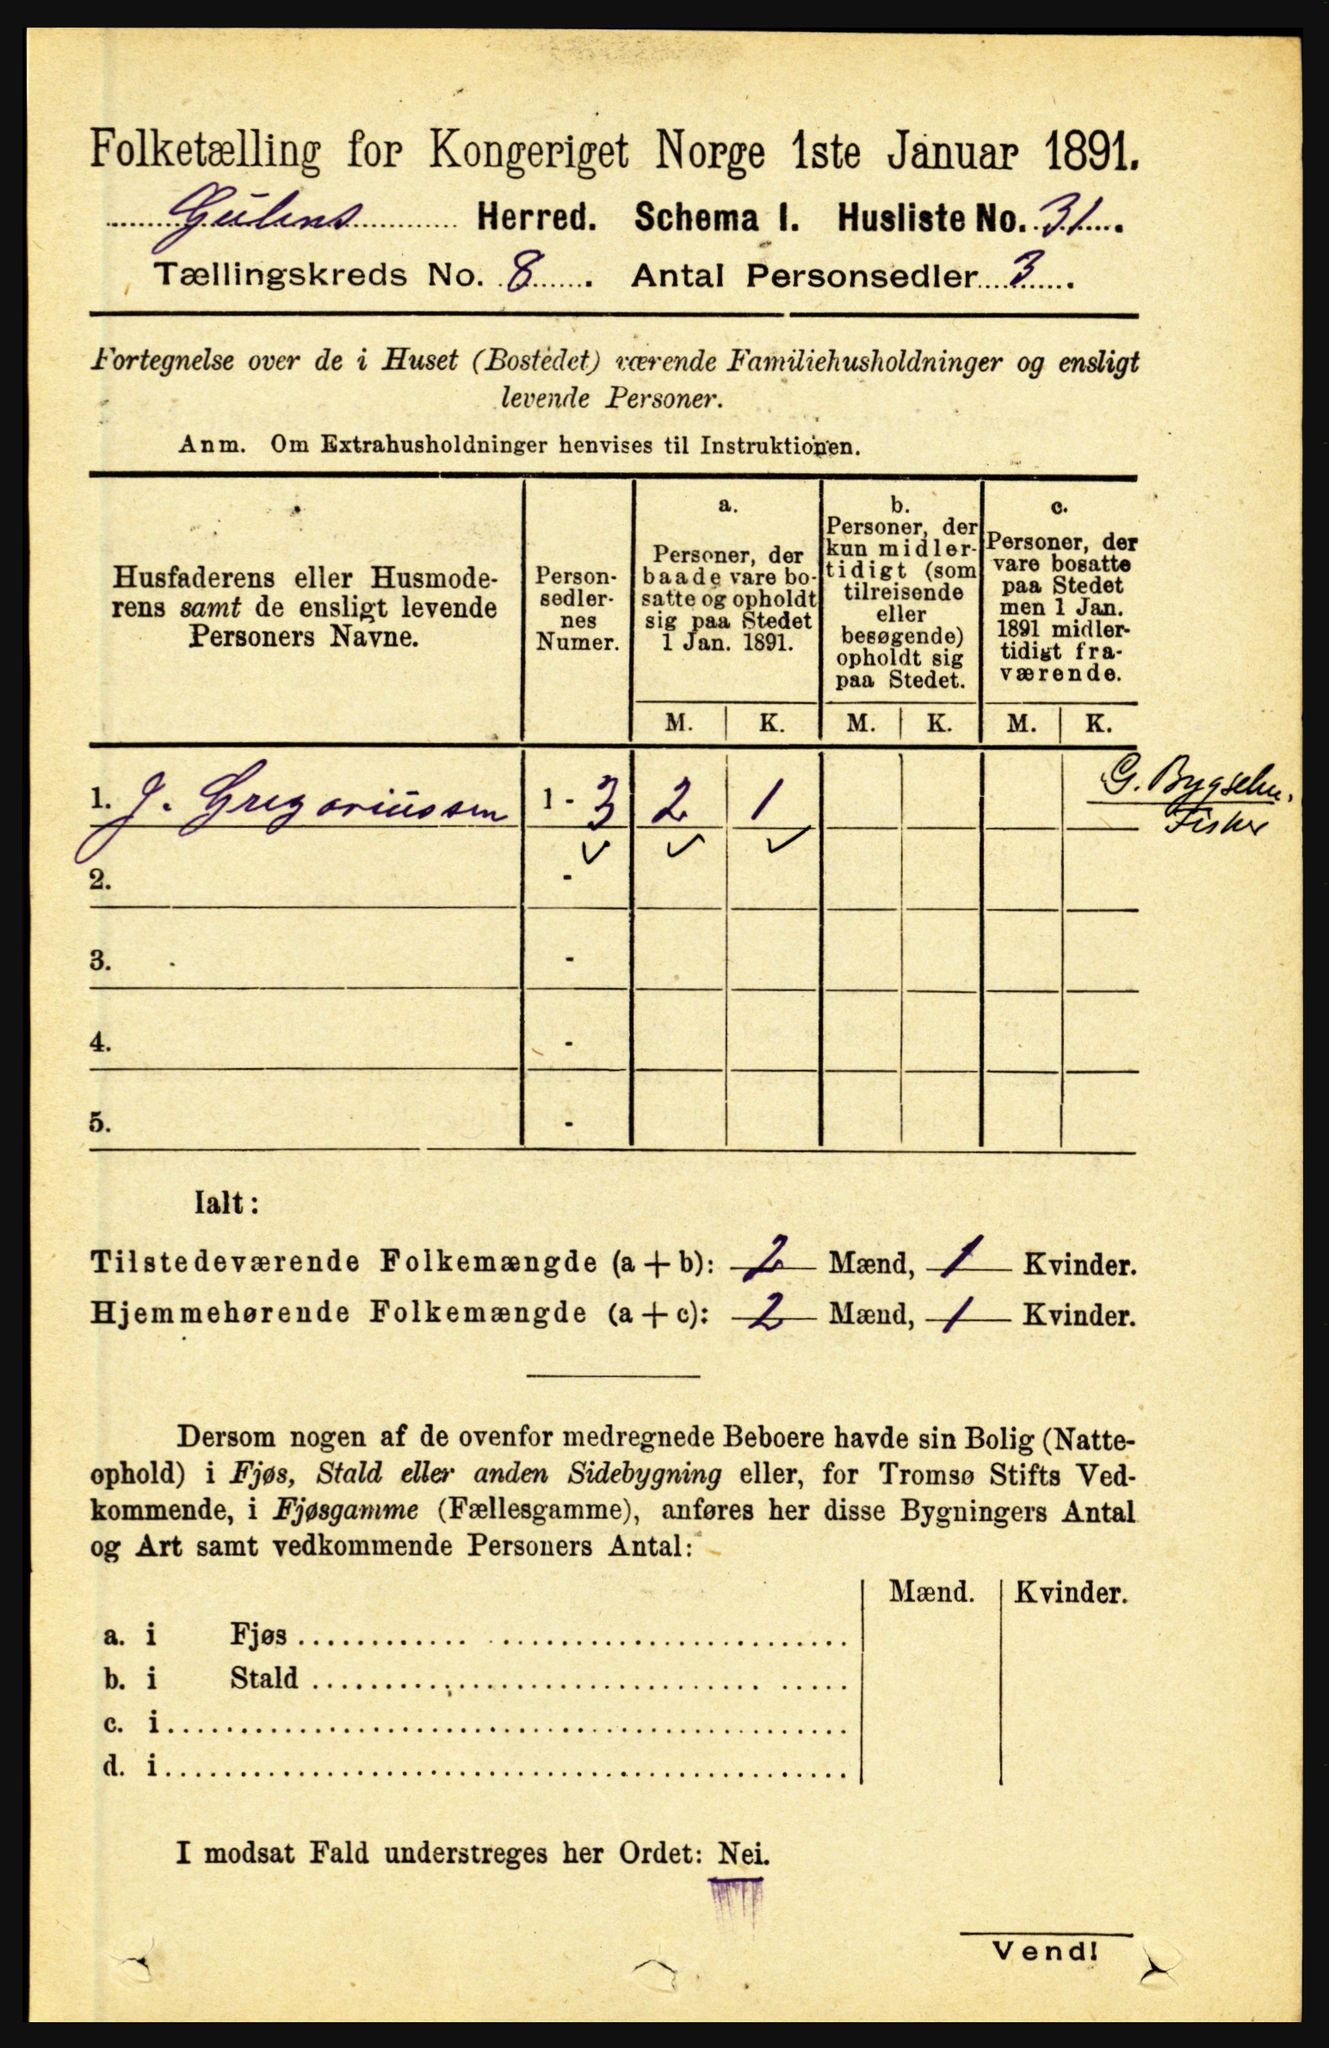 Folketælling for Kongeriget Norge 1ste Januar 1891.
Gulens Herred. Schema I. Husliste No. 31.
Tællingskreds No. 8. Antal Personsedler 3.
Fortegnelse over de i Huset (Bostedet) værende Familiehusholdninger og ensligt
levende Personer.
Anm. Om Extrahusholdninger henvises til Instruktionen.
Husfaderens eller Husmode-
rens samt de ensligt levende
Personers Navne.
Person-
sedler-
nes
Numer.
a.
Personer, der
baade vare bo-
satte og opholdt
sig paa Stedet
1 Jan. 1891.
b.
Personer, der
kun midler-
tidigt (som
tilreisende
eller
besøgende)
opholdt sig
paa Stedet.
c.
Personer, der
vare bosatte
paa Stedet
men 1 Jan.
1891 midler-
tidigt fra-
værende.
M. K. M. K. M. K.
1. J. Gregoriussen 1 - 3 2 1
G. Bygselm.
Fisker
2. -
3. -
4. -
5. -
Ialt:
Tilstedeværende Folkemængde (a + b): 2 Mænd, 1 Kvinder.
Hjemmehørende Folkemængde (a + c): 2 Mænd, 1 Kvinder.
Dersom nogen af de ovenfor medregnede Beboere havde sin Bolig (Natte-
ophold) i Fjøs, Stald eller anden Sidebygning eller, for Tromsø Stifts Ved-
kommende, i Fjøsgamme (Fællesgamme), anføres her disse Bygningers Antal
og Art samt vedkommende Personers Antal:
Mænd. Kvinder.
a. i Fjøs
b. i Stald
c. i
d. i
I modsat Fald understreges her Ordet: Nei.
Vend!